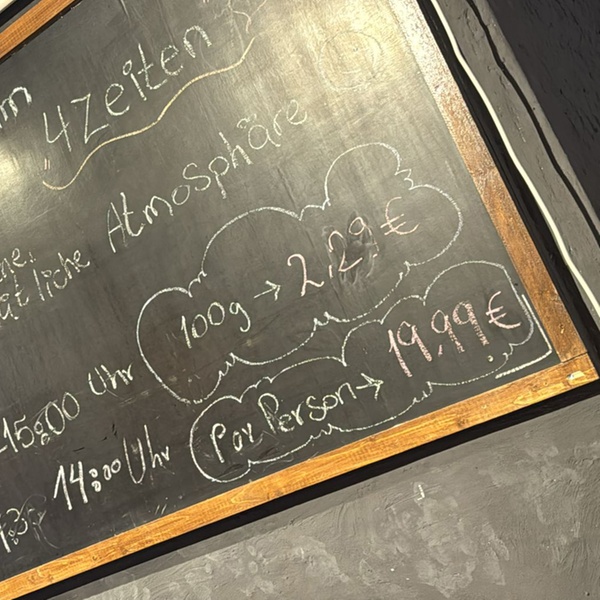 4Zeiten
Atmosphäre
100g → 2,29 €
15:00 Uhr
Por Person → 19,99 €
14:00 Uhr